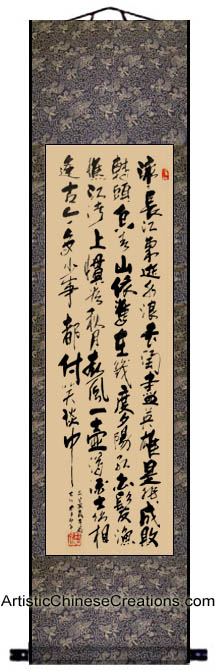 滾滾長江東逝水浪花淘盡英雄是非成敗
轉頭空青山依舊在幾度夕陽紅白髮漁
樵江渚上慣看秋月春風一壺濁酒喜相
逢古今多少事都付笑談中
ArtisticChineseCreations.com